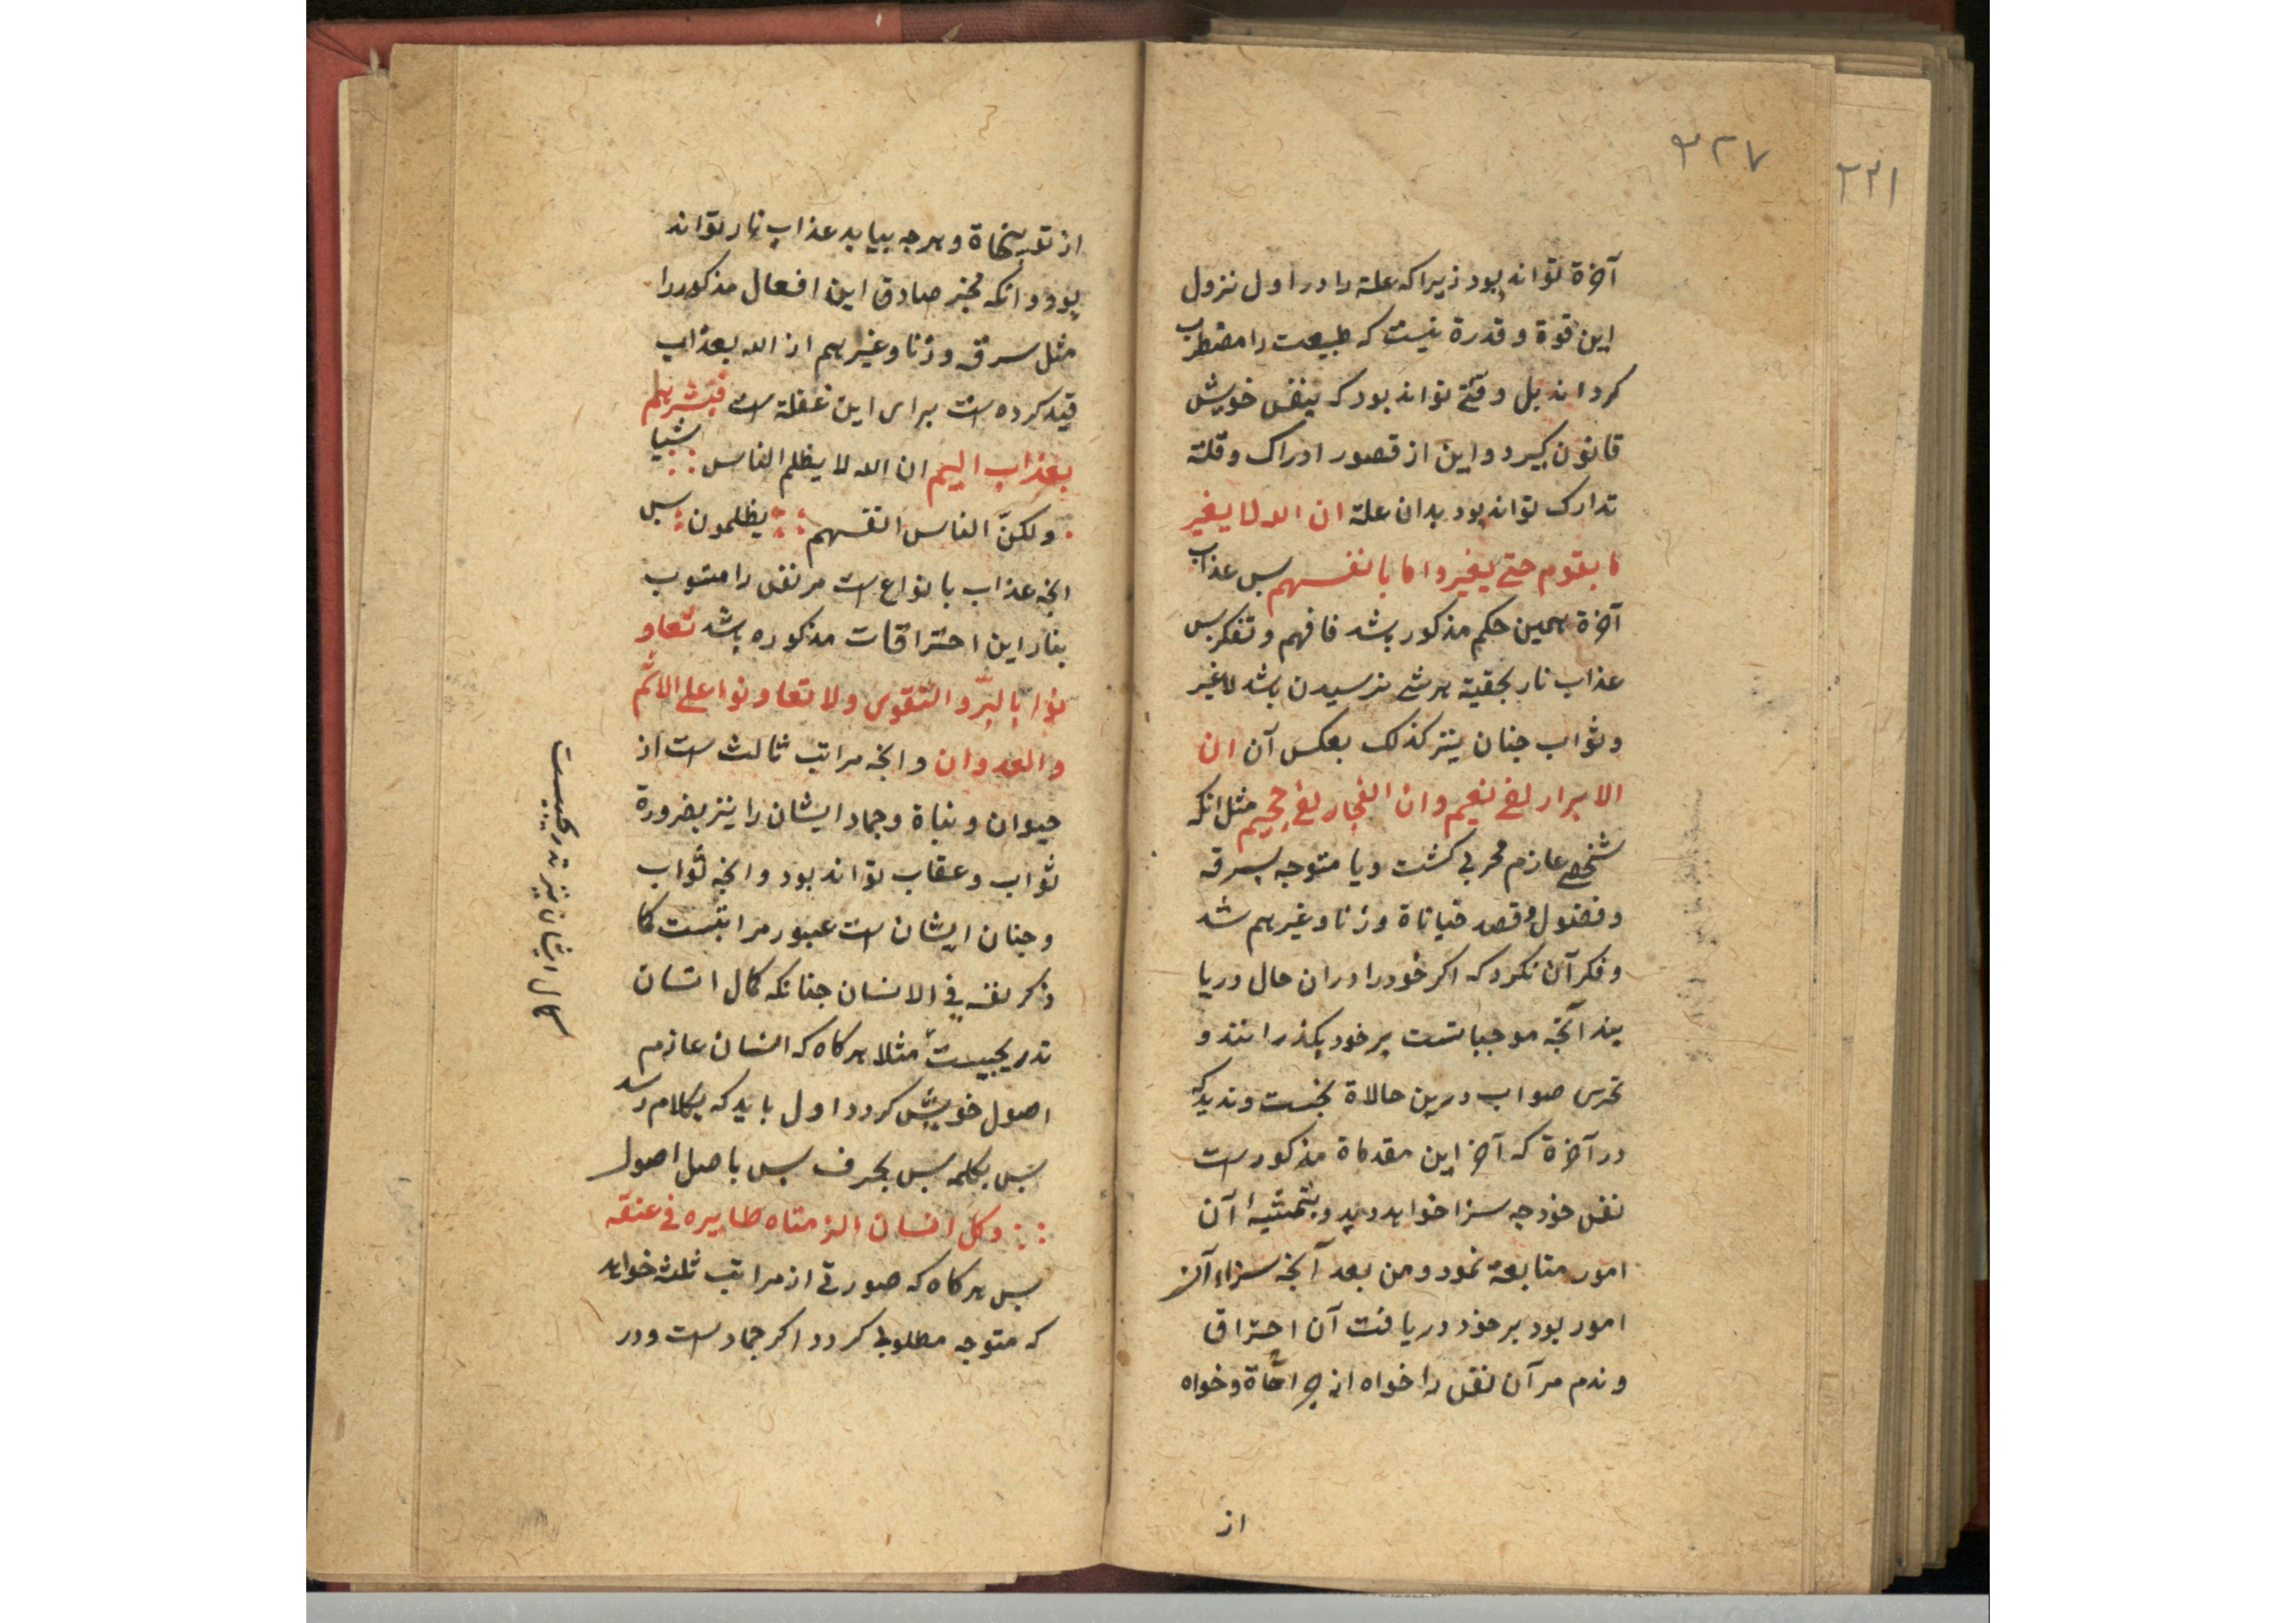 ۳۲۷
۳۳۱
آخرة تواند بود زیرا که علة را در اول نزول
این قوة و قدرة نیست که طبیعت را مضطرب
کرداند بل وقتی تواند بود که بنفس خویش
قانون کیرد و این از قصور ادراک و قلة
تدارک تواند بود بدان علة ان الله لا یغیر
ما بقوم حتی یغیروا ما بانفسهم بس عذاب
آخرة همین حکم مذکور باشد فافهم و تفکر بس
عذاب نار بحقیقة هر شی نرسیدن باشد لا غیر
و ثواب جنان نیز کذلک بعکس آن ان
الابرار لفی نعیم و ان الفجار لفی جحیم مثل انکه
شخصی عازم محربی کشت و یا متوجه بسرقه
و فضول و قصد خیاناة و زنا و غیرهم شد
و فکر آن نکرد که اکر خود را در ان حال دریا
بند آنچه موجباتست بر خود بکذرانند و
تحری صواب درین حالاة بجست و ندید که
در آخرة که آخر این مقدماة مذکورست
نفس خود چه سزا خواهد دید و بتمشیة آن
امور متابعة نمود و من بعد آنچه سزاء آن
امور بود بر خود دریافت آن احتراق
و ندم مر آن نفس را خواه از جراحاة و خواه
از
از تعبیخاة و هر چه بیاید عذاب نار تواند
بود و انکه مخبر صادق این افعال مذکور را
مثل سرقه و زنا و غیرهم از الله بعذاب
قید کرده است برای این غفلة است فبشرهم
بعذاب الیم ان الله لا یظلم الناس شیا
و لکن الناس انفسهم یظلمون بس
انچه عذاب بانواع است مر نفس را منسوب
بنار این احتراقات مذکوره باشد تعاو
نوا بالبر و التقوی و لا تعاونوا علی الاثم
و العدوان و انچه مراتب ثالث است از
حیوان و نباة و جماد ایشان را نیز بضرورة
ثواب و عقاب تواند بود و انچه ثواب
و جنان ایشان است عبور مراتبست کما
ذکر نفسه فی الانسان جنانکه کمال انسان
تدریجیست مثلا هر کاه که انسان عازم
اصول خویش کردد اول باید که بکلام رسد
بس بکلمه بس بحرف بس باصل اصول
و کل انسان الزمناه طایره فی عنقه
بس هر کاه که صورتی از مراتب ثلثه خواهد
که متوجه مطلوبی کردد اکر جمادست و در
کمال ایشان نیز تدریجیست